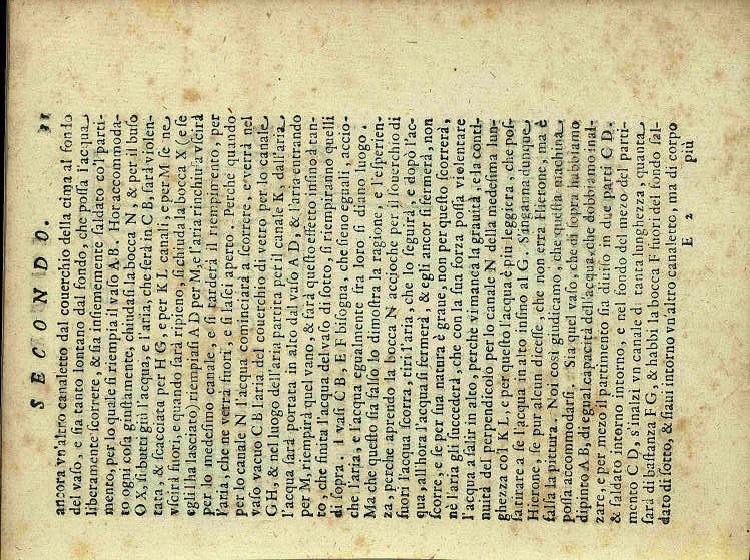 SECONDO. 35
ancora vn'altro canaletto dal couerchio della cima al fondo
del vaſo, e ſia tanto lontano dal fondo, che poſſa l'acqua
liberamente ſcorrere, & ſia inſiemente ſaldato co'l parti-
mento, per lo quale ſi riempia il vaſo AB. Hor accommoda-
to ogni coſa giuſtamente, chiudaſi la bocca N, & per il buſo
OX, ſi butti giù l'acqua, e l'aria, che ſerà in CB, ſarà violen-
tata, & ſcacciata per HG, e per KL canali, e per M ſe ne
vſcirà fuori, e quando ſarà ripieno, ſi chiuda la bocca X (e ſe
egli l'ha laſciato) riempiaſi AD per M, e l'aria rinchiuſa vſcirà
per lo medeſimo canale, e ſi tarderà il riempimento, per
l'aria, che ne verrà fuori, e ſi laſci aperto. Perche quando
per lo canale N l'acqua cominciarà a ſcorrere, e verrà nel
vaſo vacuo CB l'aria del couerchio di vetro per lo canale
GH, & nel luogo dell'aria partita per il canale K, dall'aria
l'acqua ſarà portata in alto dal vaſo AD, & l'aria entrando
per M, riempirà quel vano, & farà queſto effetto inſino à tan-
to, che finita l'acqua del vaſo di ſotto, ſi riempiranno quelli
di ſopra. I vaſi CB, EF biſogna, che ſieno eguali, accio-
che l'aria, e l'acqua egualmente fra loro ſi diano luogo.
Ma che queſto ſia falſo lo dimoſtra la ragione, e l'eſperien-
za, perche aprendo la bocca N accioche per il ſouerchio di
fuori l'acqua ſcorra, tiri l'aria, che lo ſeguirà, e dopò l'ac-
qua, all'hora l'acqua ſi fermerà, & egli ancor ſi fermerà, non
ſcorre, e ſe per ſua natura è graue, non per queſto ſcorrerà,
nè l'aria gli ſuccederà, che con la ſua forza poſſa violentare
l'acqua a ſalir in alto, perche vi manca la grauità, e la conti-
nuità del perpendicolo per lo canale N della medeſima lun-
ghezza col KL, e per queſto l'acqua è più leggiera, che poſ-
ſa tirare a ſe l'acqua in alto inſino al G. S'inganna dunque
Hierone, ſe pur alcun diceſſe, che non erra Hierone, ma è
falſa la pittura. Noi così giudicamo, che queſta machina
poſſa accommodarſi. Sia quel vaſo, che di ſopra hubbiamo
dipinto AB, di egual capacità dell'acqua, che dobbiamo inal-
zare, e per mezo il partimento ſia diuiſo in due parti CD,
& ſaldato intorno intorno, e nel fondo del mezo del parti-
mento CD, s'inalzi vn canale di tanta lunghezza, quanta
ſarà di baſtanza FG, & habbi la bocca F fuori del fondo ſal-
dato di ſotto, & ſiaui intorno vn'altro canaletto, ma di corpo
E 2 più